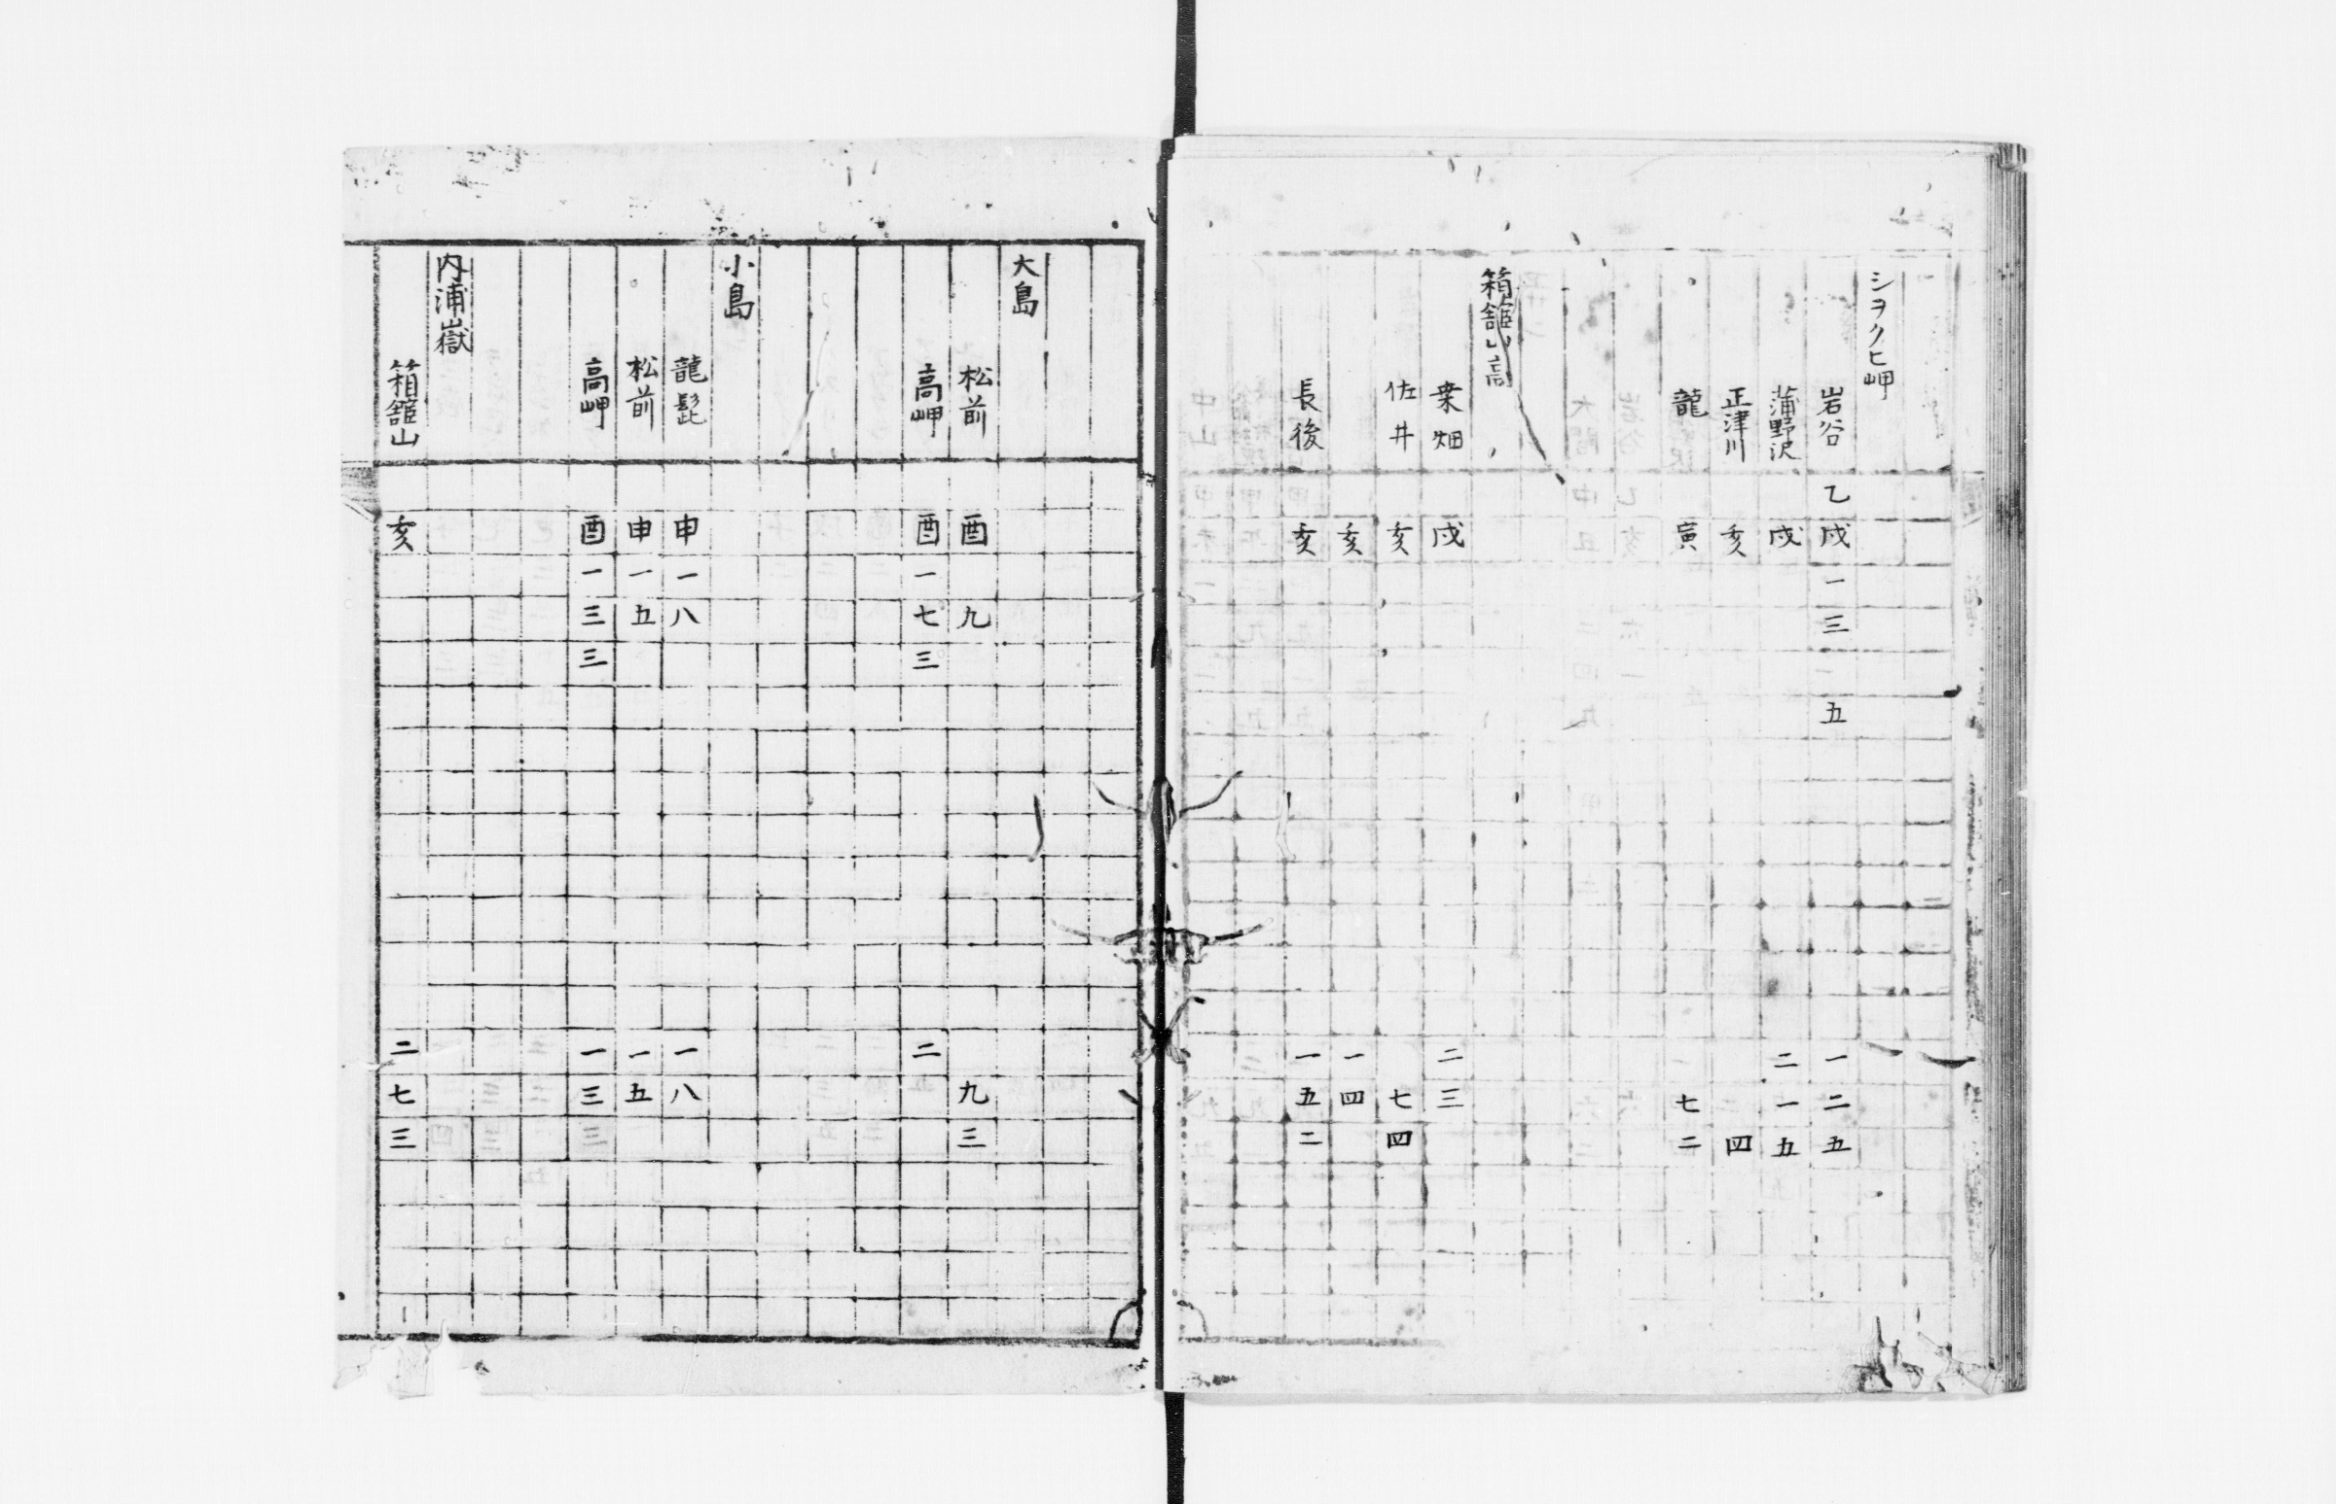 シヲクヒ岬
岩谷 乙戌 一三二五 一二五
蒲野沢 戌 二一五
正津川 亥 四
龍 寅 七二
箱舘山高
桒畑 戌 二三
佐井 亥 七四
亥 一四
長後 亥 一五二
大島
松前 酉 九 九三
高岬 酉 一七三 二
小島
龍髭 申 一八 一八
松前 申 一五 一五
高岬 酉 一三三 一三三
内浦嶽
箱舘山 亥 二七三